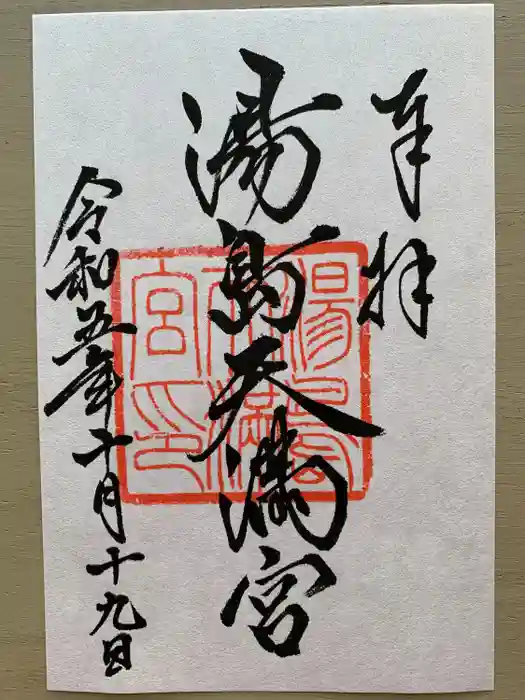 奉拝
湯島天満宮
令和五年十月十九日
湯島天満宮印